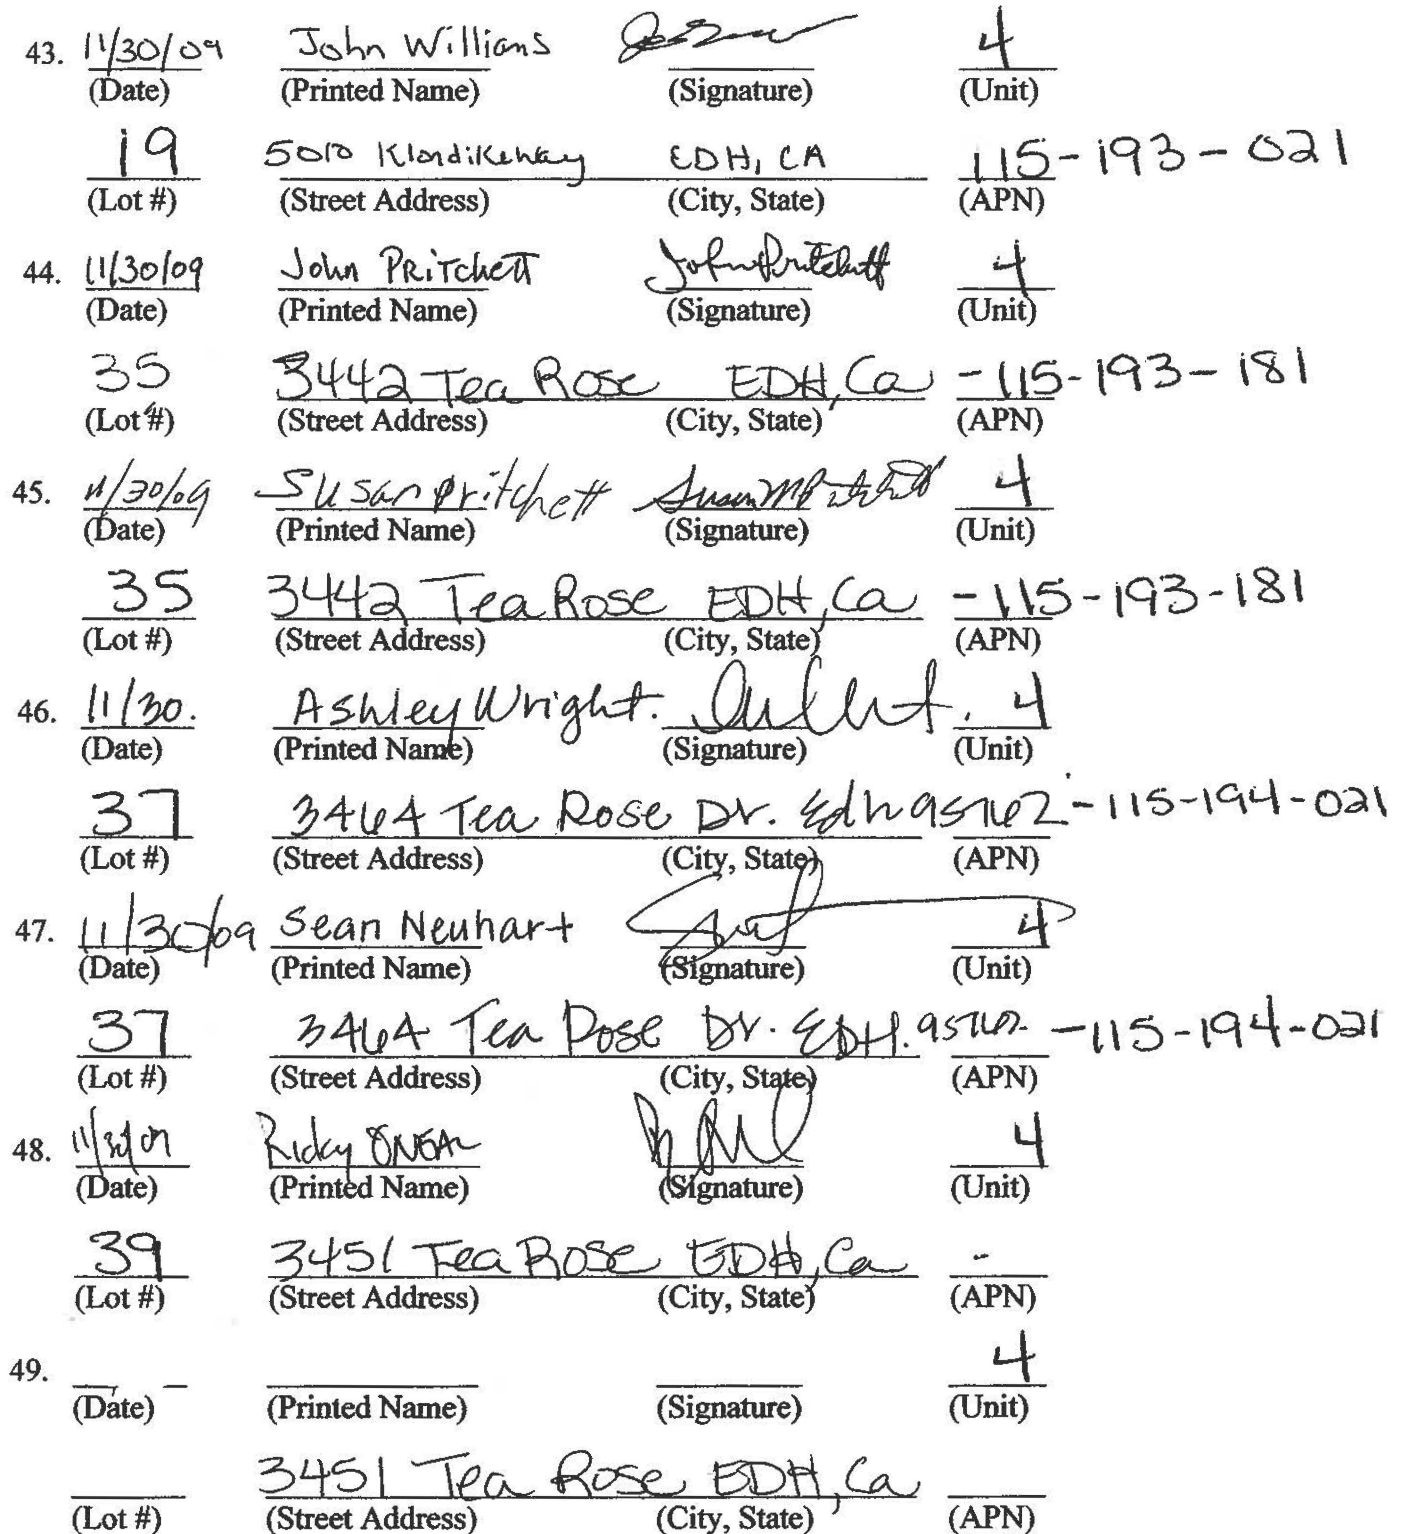 43. 11/30/09 John Willians 4
(Date) (Printed Name) (Signature) (Unit)
19 5010 Klondike Way EDH, CA 115-193-021
(Lot #) (Street Address) (City, State) (APN)
44. 11/30/09 John PRITchett John Pritchett 4
(Date) (Printed Name) (Signature) (Unit)
35 3442 Tea Rose EDH, Ca -115-193-181
(Lot #) (Street Address) (City, State) (APN)
45. 11/30/09 Susan Pritchett Susan M Pritchett 4
(Date) (Printed Name) (Signature) (Unit)
35 3442 Tea Rose EDH, Ca -115-193-181
(Lot #) (Street Address) (City, State) (APN)
46. 11/30. Ashley Wright. 4
(Date) (Printed Name) (Signature) (Unit)
37 3464 Tea Rose Dr. Edh 95762 -115-194-021
(Lot #) (Street Address) (City, State) (APN)
47. 11/30/09 Sean Neuhart 4
(Date) (Printed Name) (Signature) (Unit)
37 3464 Tea Rose Dr. EDH. 95762 -115-194-021
(Lot #) (Street Address) (City, State) (APN)
48. 11/30/09 Ricky ONEAL 4
(Date) (Printed Name) (Signature) (Unit)
39 3451 Tea Rose EDH, Ca -
(Lot #) (Street Address) (City, State) (APN)
49. 4
(Date) (Printed Name) (Signature) (Unit)
3451 Tea Rose EDH, Ca
(Lot #) (Street Address) (City, State) (APN)